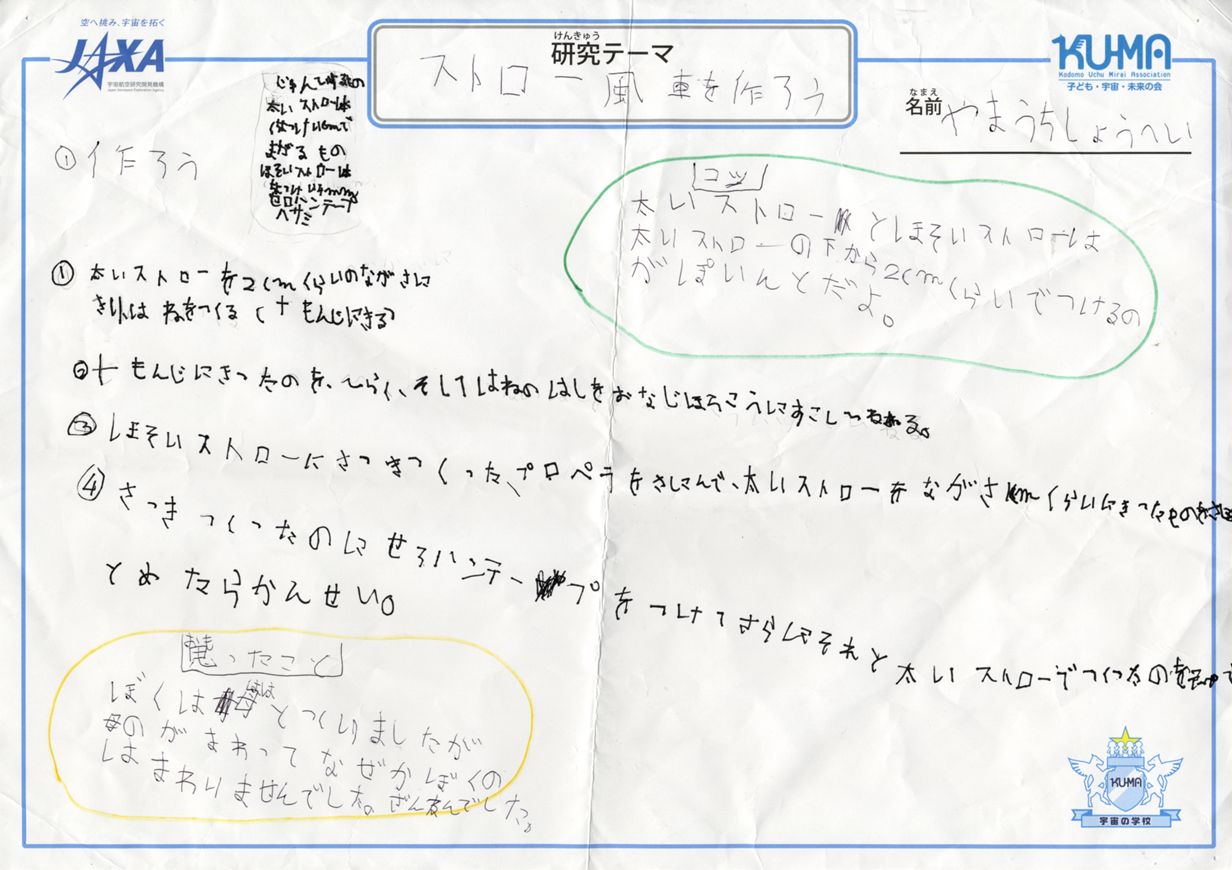 空へ挑み、宇宙を拓く
JAXA
宇宙航空研究開発機構
Japan Aerospace Exploration Agency
けんきゅう
研究テーマ
ストロー風車を作ろう
KUMA
Kodomo Uchu Mirai Association
子ども・宇宙・未来の会
なまえ
名前 やまうちしょうへい
① 作ろう
じゅんび
太いストローは
まがるもの
ほそいストローは
セロハンテープ
ハサミ
コツ
太いストローとほそいストローは
太いストローの下から2cmくらいでつけるの
がぽいんとだよ。
① 太いストローを2cmくらいのながさに
きりはねをつくる(十もんじにきる)
② 十もんじにきったのを、ひらく、そしてはねのはしをおなじほうこうにすこし
③ ほそいストローにさっきつくった、プロペラをさしこんで、太いストローをながさ cmくらいにきったものをさ
④ さっきつくったのにセロハンテープをつけてさらにそれと太いストローでつくったのを
とめたらかんせい。
おも
思ったこと
はは
ぼくは母とつくりましたが
母のがまわってなぜかぼくの
はまわりませんでした。ざんねんでした。
KUMA
宇宙の学校